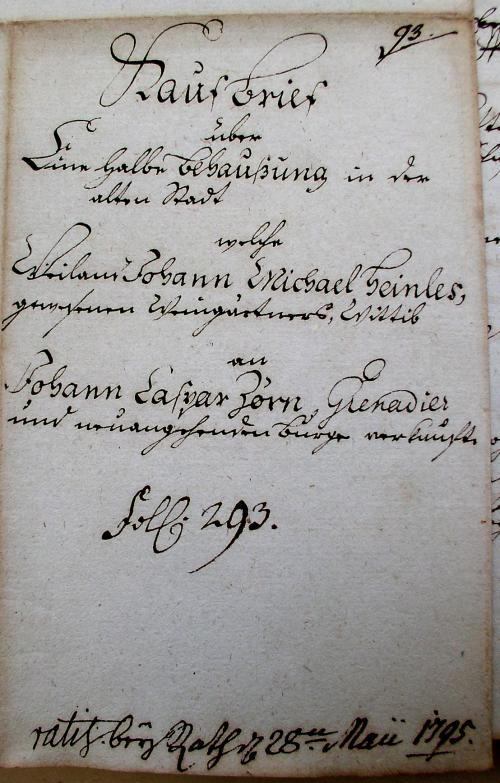 93.
Kaufbrief
über
Eine halbe Behaußung in der
alten Stadt
welche
Weiland Johann Michael Heinles,
gewesenen Weingärtners, Wittib
an
Johann Caspar Zorn, Grenadier
und neuangehenden Burger verkaufte
Foll: 293.
ratif. beÿ Rath d 28ten Maii 1795.